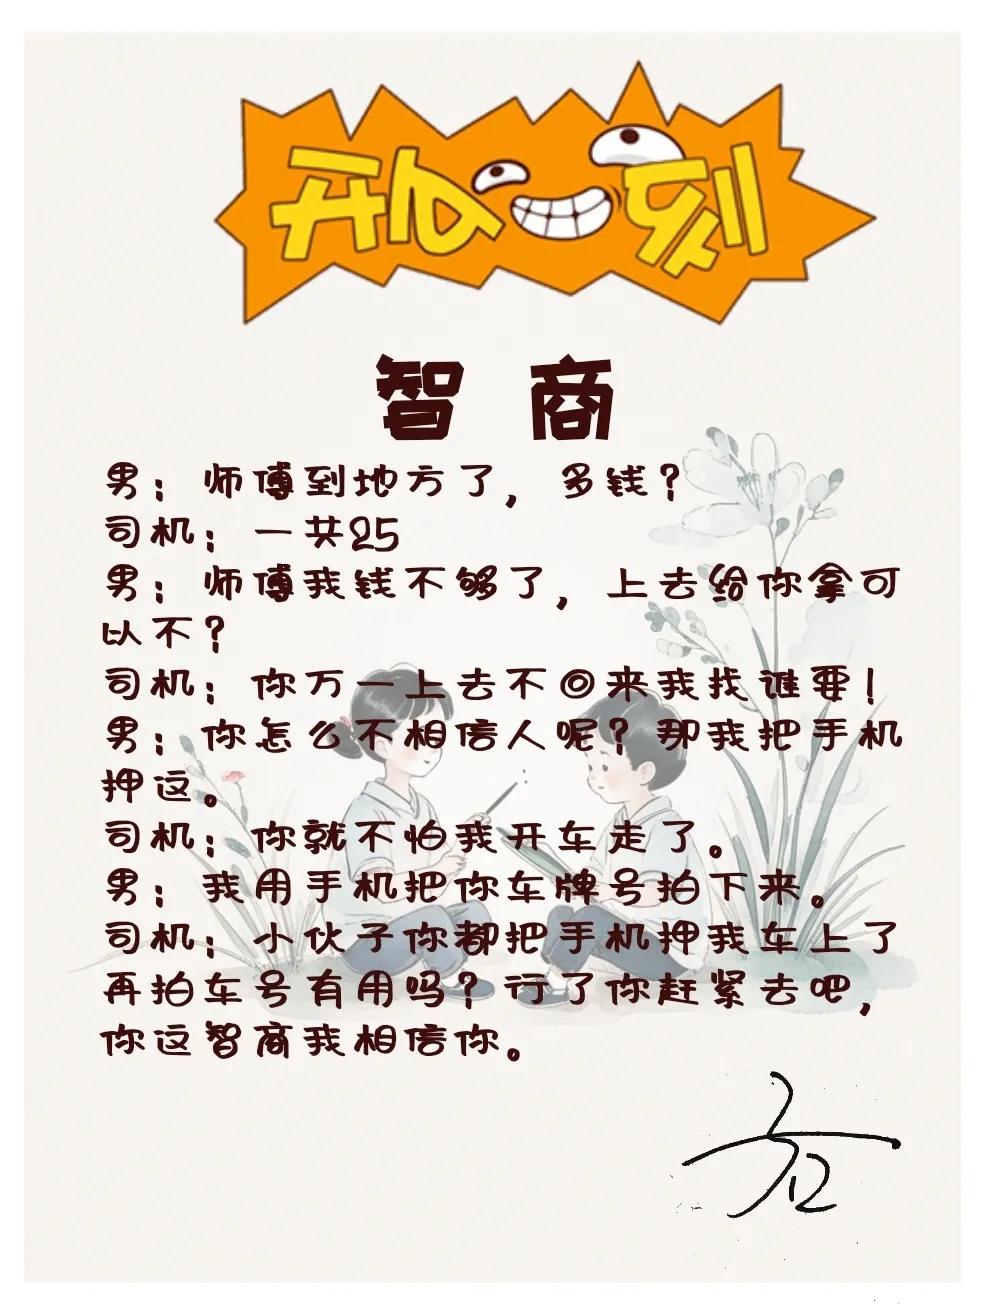 开心一刻
智商
男：师傅到地方了，多钱？
司机：一共25
男：师傅我钱不够了，上去给你拿可
以不？
司机：你万一上去不回来我找谁要！
男：你怎么不相信人呢？那我把手机
押这。
司机：你就不怕我开车走了。
男：我用手机把你车牌号拍下来。
司机：小伙子你都把手机押我车上了
再拍车号有用吗？行了你赶紧去吧，
你这智商我相信你。